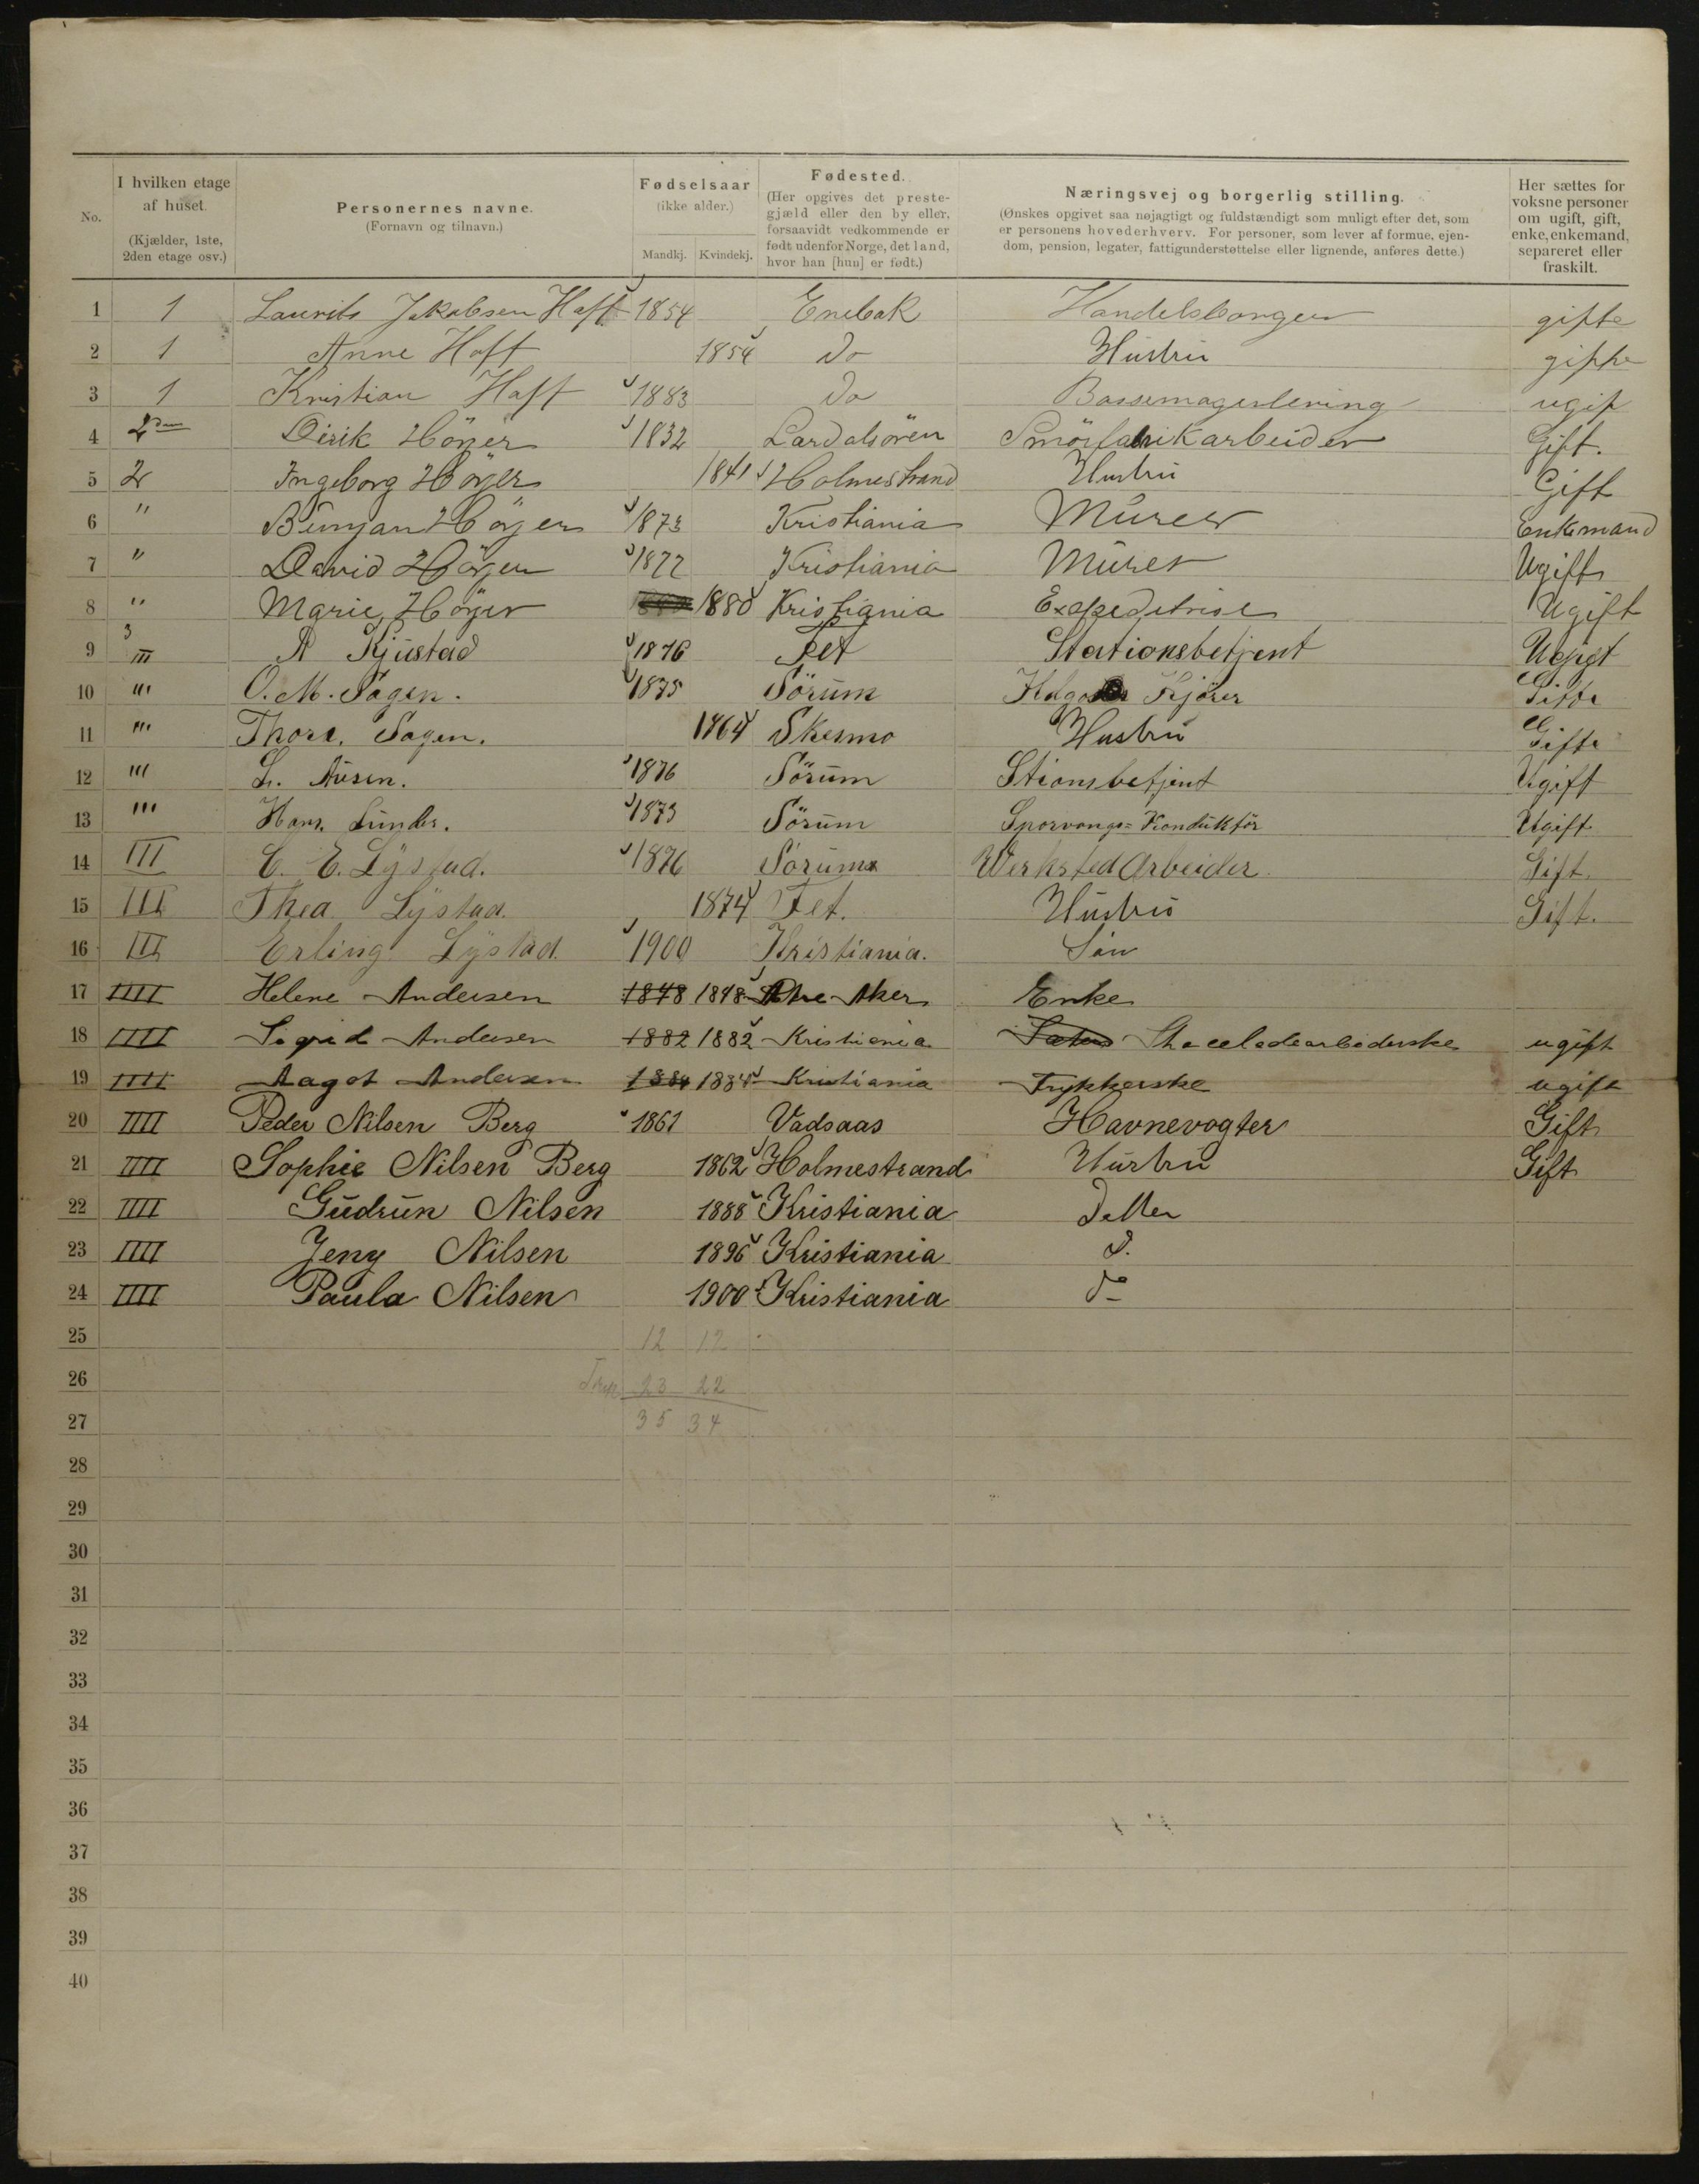 No. I hvilken etage af huset. (Kjælder, 1ste, 2den etage osv.) Personernes navne. (Fornavn og tilnavn.) Fødselsaar (ikke alder.) Mandkj. Kvindekj. Fødested. (Her opgives det prestegjæld eller den by eller, forsaavidt vedkommende er født udenfor Norge, det land, hvor han [hun] er født.) Næringsvej og borgerlig stilling. (Ønskes opgivet saa nøjagtigt og fuldstændigt som muligt efter det, som er personens hovederhverv. For personer, som lever af formue, ejendom, pension, legater, fattigunderstøttelse eller lignende, anføres dette.) Her sættes for voksne personer om ugift, gift, enke, enkemand, separeret eller fraskilt.
1 1 Laurits Jakobsen Hoff 1854 Enebak Handelsborger gifte
2 1 Anne Hoff 1854 do Hustru gifte
3 1 Kristian Hoff 1883 do Bossemagerlering ugif
4 2den Dirik Höyer 1832 Lardalsören Smörfabrikarbeider Gift.
5 2 Ingeborg Höyer 1841 Holmestrand Hustru Gift
6 " Bunjan Höyer 1873 Kristiania Murer Enkemand
7 " David Höyer 1877 Kristiania Murer Ugift
8 " Marie Höyer 1880 Kristiania Expeditrise Ugift
9 3 III A Kjustad 1876 Fet Stationsbetjent Ugigt
10 "' O. M. Sagen. 1875 Sörum Kjörer Gifte
11 "' Thora. Sagen. 1864 Skesmo Hustru Gifte
12 "' L. Ausen. 1876 Sörum Stionsbetjent Ugift
13 "' Hans. Lunder. 1873 Sörum Sporvongs= Konduktör Ugift
14 III C. E. Lystad. 1876 Sörum Verksted Arbeider Gift.
15 III Thea Lystad. 1874 Fet. Hustru Gift.
16 III Erling Lystad. 1900 Kristiania. Sön
17 IIII Helene Andersen 1848 1848 Aker Enke
18 IIII Sigrid Andersen 1882 1882 Kristiania ugift
19 IIII Aagot Andersen 1884 1884 Kristiania Trykkerske ugift
20 IIII Peder Nilsen Berg 1861 Vadsaas Havnevogter Gift
21 IIII Sophie Nilsen Berg 1862 Holmestrand Hustru Gift
22 IIII Gudrun Nilsen 1888 Kristiania Datter
23 IIII Jeny Nilsen 1896 Kristiania d.
24 IIII Paula Nilsen 1900 Kristiania do
25 12 12
26 23 22
27 35 34
28
29
30
31
32
33
34
35
36
37
38
39
40